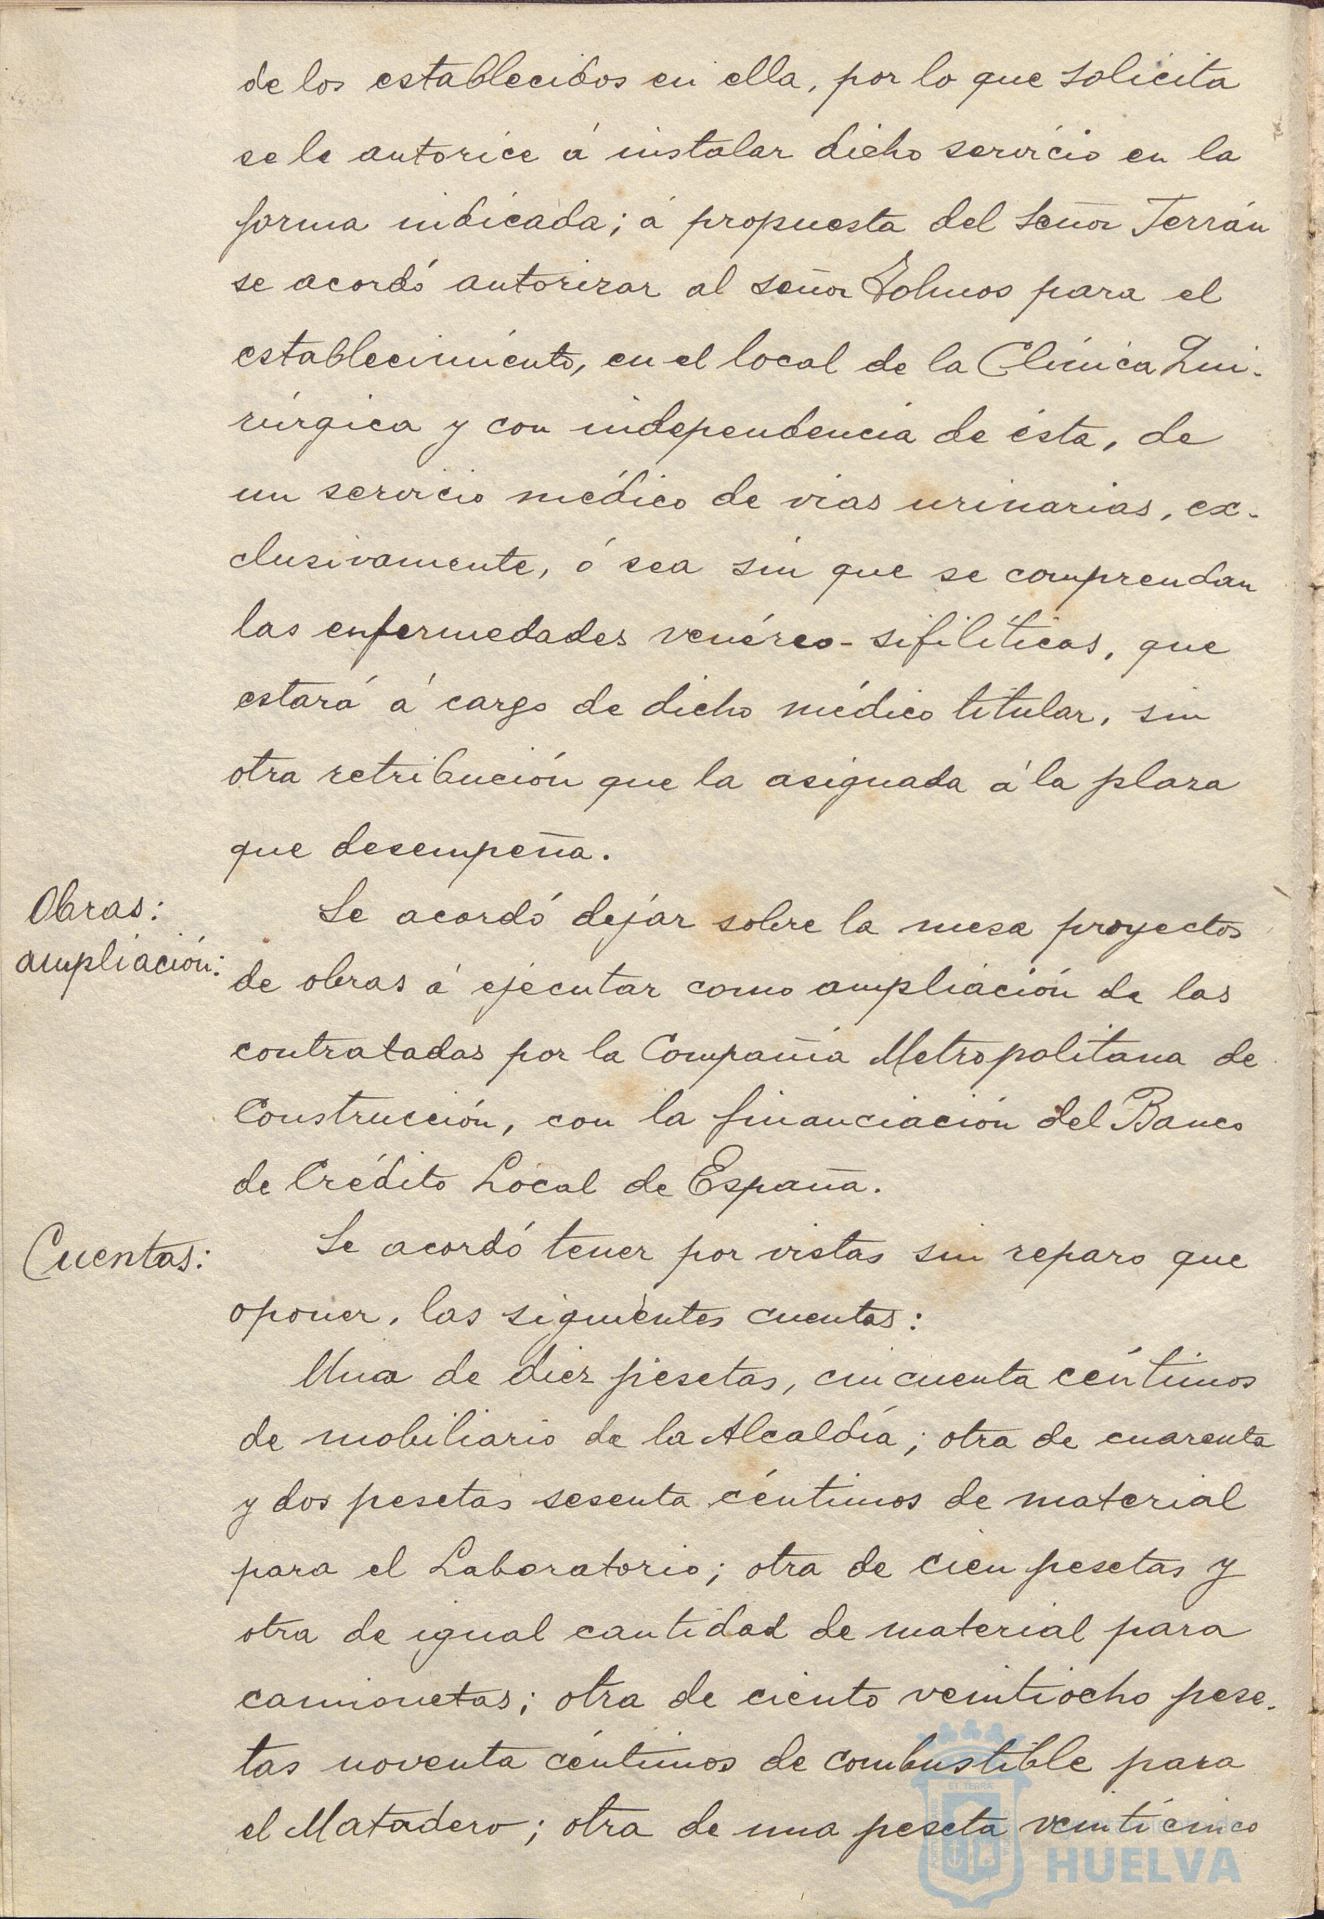 de los establecidos en ella, por lo que solicita
se le autorice á instalar dicho servicio en la
forma indicada; á propuesta del señor Terrán
se acordó autorizar al señor para el
establecimiento, en el local de la Clínica Qui-
rúrgica y con independencia de ésta, de
un servicio médico de vias urinarias, ex-
clusivamente, ó sea sin que se comprendan
las enfermedades venéreo-sifilíticas, que
estará á cargo de dicho médico titular, sin
otra retribución que la asignada á la plaza
que desempeña.
Obras:
ampliación:
Se acordó dejar sobre la mesa proyectos
de obras á ejecutar como ampliación de las
contratadas por la Compañía Metropolitana de
Construcción, con la financiación del Banco
de Crédito Local de España.
Cuentas:
Se acordó tener por vistas sin reparo que
oponer, las siguientes cuentas:
Una de diez pesetas, cincuenta céntimos
de mobiliario de la Alcaldía; otra de cuarenta
y dos pesetas sesenta céntimos de material
para el Laboratorio; otra de cien pesetas y
otra de igual cantidad de material para
camionetas; otra de ciento veintiocho pese-
tas noventa céntimos de combustible para
el Matadero; otra de una peseta veinticinco
HUELVA